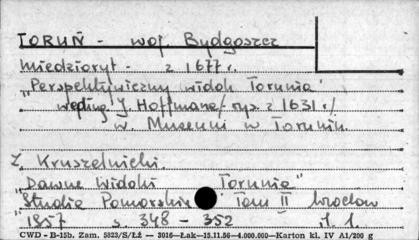 TORUŃ - woj. Bydgoszcz
miedzioryt - z 1677 r.
"Perspektywiczny widok Torunia"
według J. Hoffmana/ rys. z 1631 r/
w. Muzeum w Toruniu.
Z. Kruszelnicki
"Dawne Widoki Torunia"
"Studia Pomorskie" Tom II Wrocław
"1957 s. 348 - 352 il. 1.
CWD - B-15b. Zam. 5823/S/Łż — 3016—Łak—15.11.56—4.000.000—Karton kl. IV A1/200 g